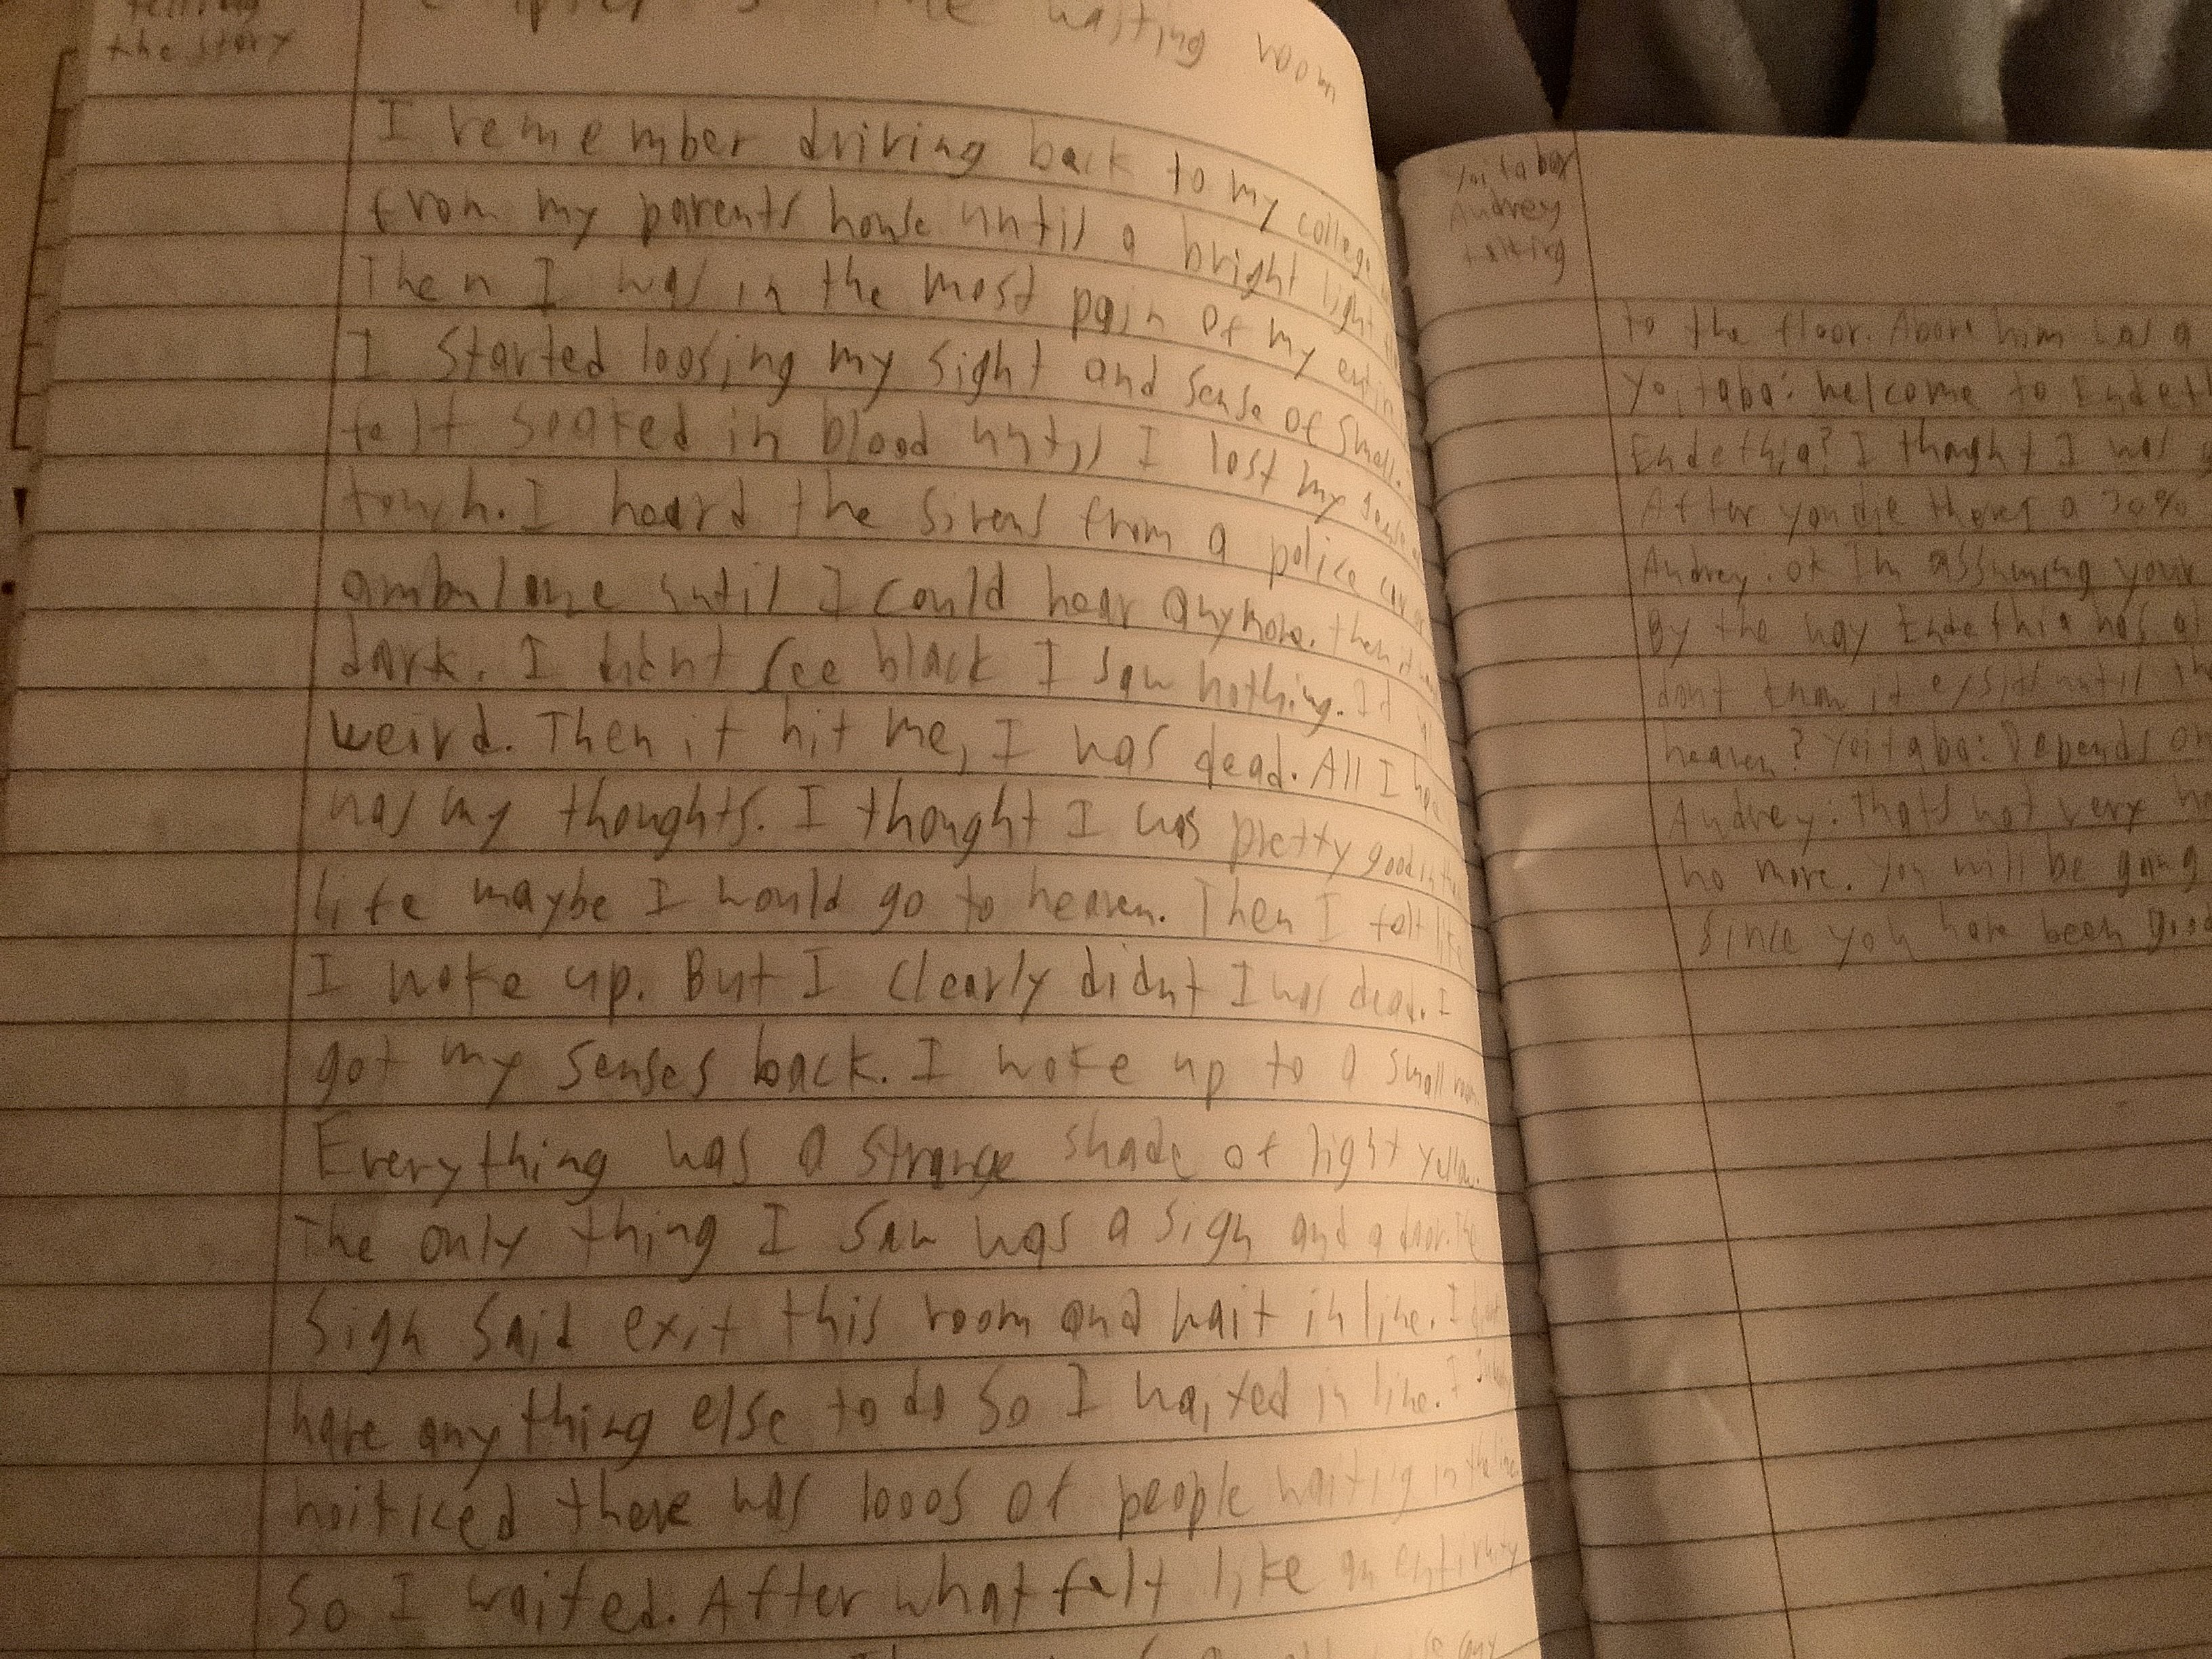 the story
waiting room
I remember driving back to my college
from my parents house until a bright light
Then I was in the most pain of my
I started loosing my sight and sense of smell.
felt soaked in blood until I lost my
touch. I heard the sirens from a police car
ambulance until I could hear anymore. then it
dark. I didnt see black I saw nothing.
weird. Then it hit me, I was dead. All I
was my thoughts. I thought I was pretty good in
life maybe I would go to heaven. Then I felt like
I woke up. But I clearly didnt I was dead. I
got my senses back. I woke up to a small room
Everything was a strange shade of light yellow.
The only thing I saw was a sign and a door. The
sign said exit this room and wait in line. I
have anything else to do So I waited in line. I
noiticed there was 1000s of people waitig in the line
So I waited. After what felt like an
Yoitaba
Audrey
to the floor. Above him was a
Yoitaba: welcome to
Endethia? I thought I was
After you die theres a 30%
Audrey: ok Im assuming your
By the way Endethia has
dont know it
heaven? Yoitaba: Depends on
Audrey: thats not very
no more. You will be going
Since you have been good